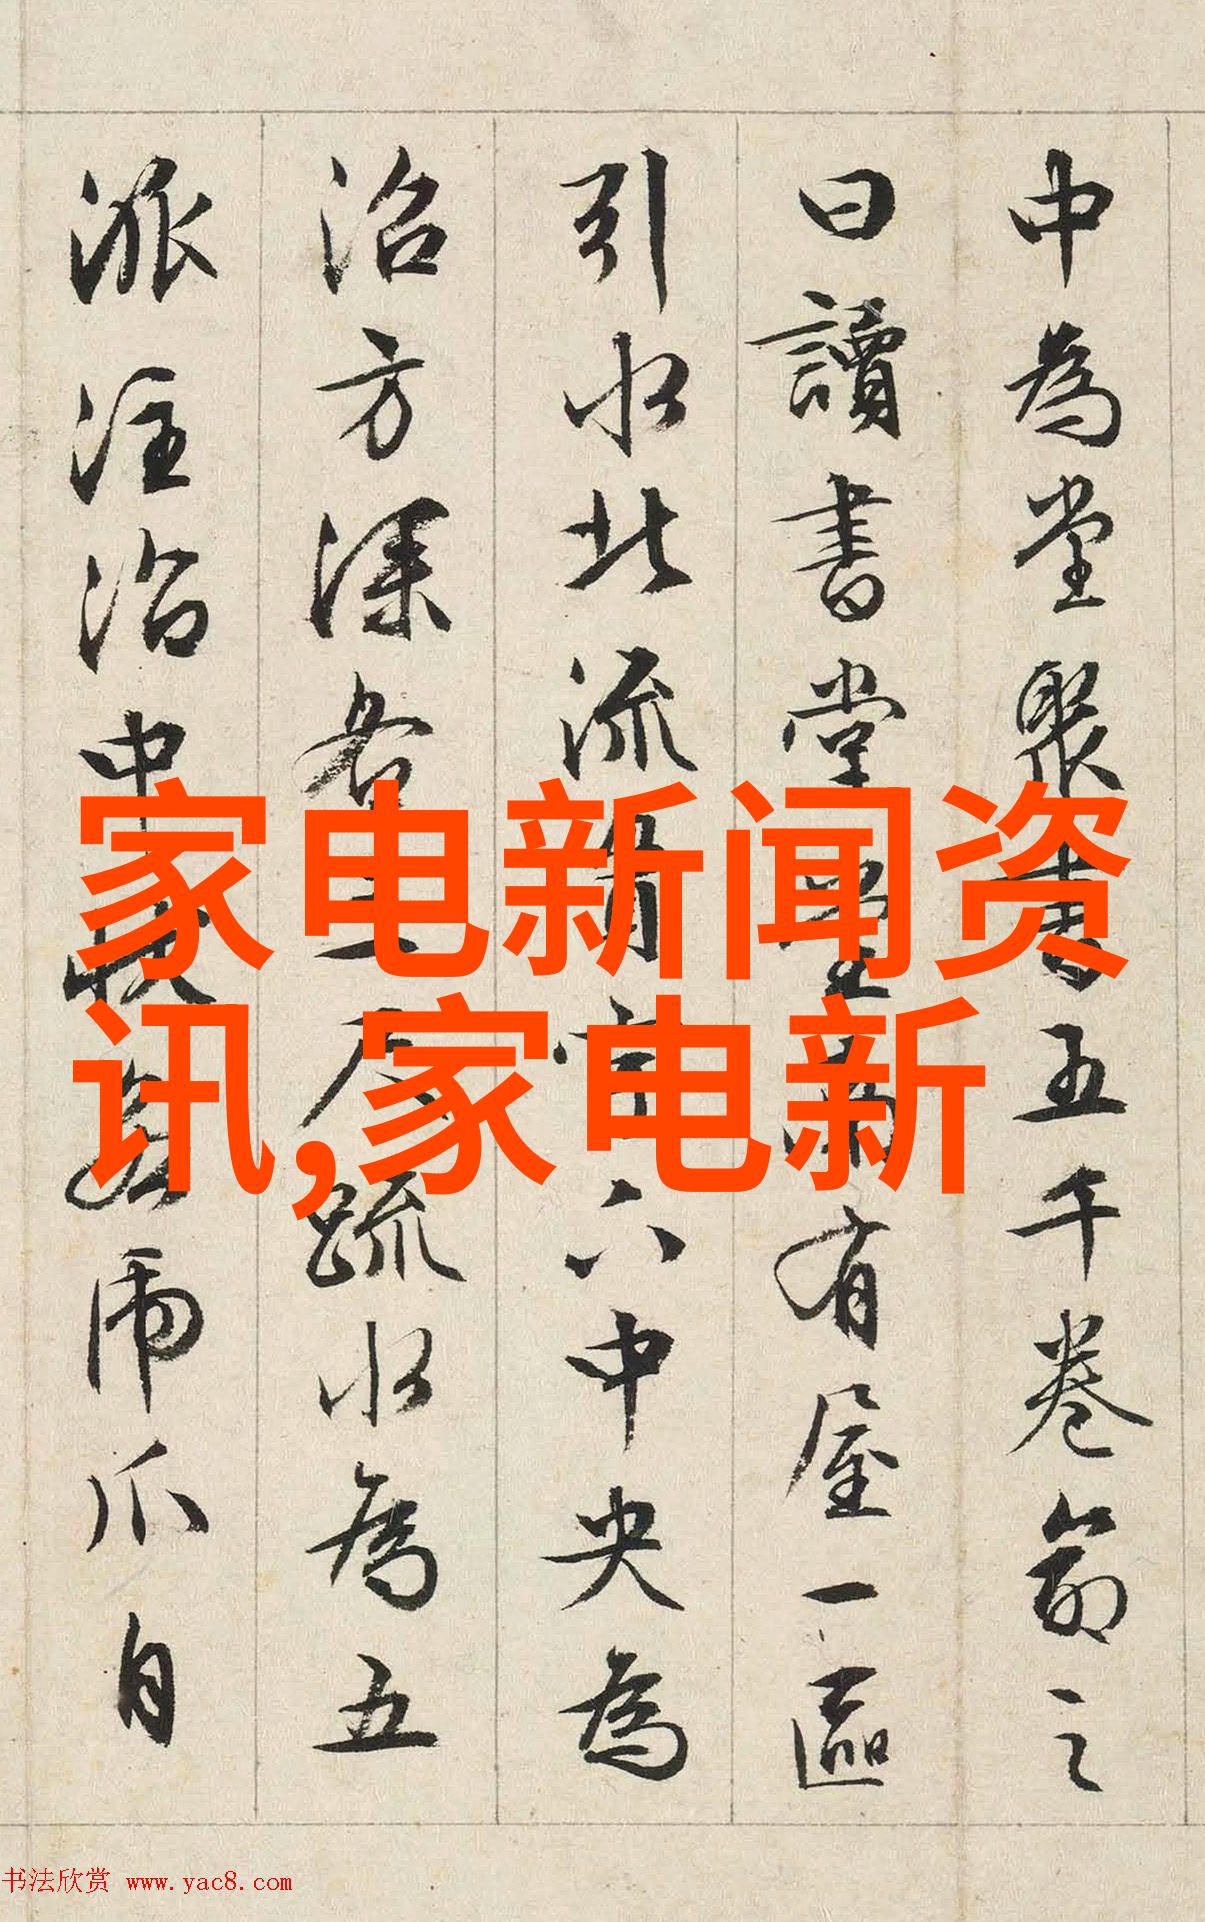 中為堂聚書五千卷命之
曰讀書堂堂南有屋一區
引水北流貫宇下中央為
沼方深各三尺疏水為五
派注沼中狀若虎爪自
家电新闻资
讯,家电新
书法欣赏 www.yac8.com